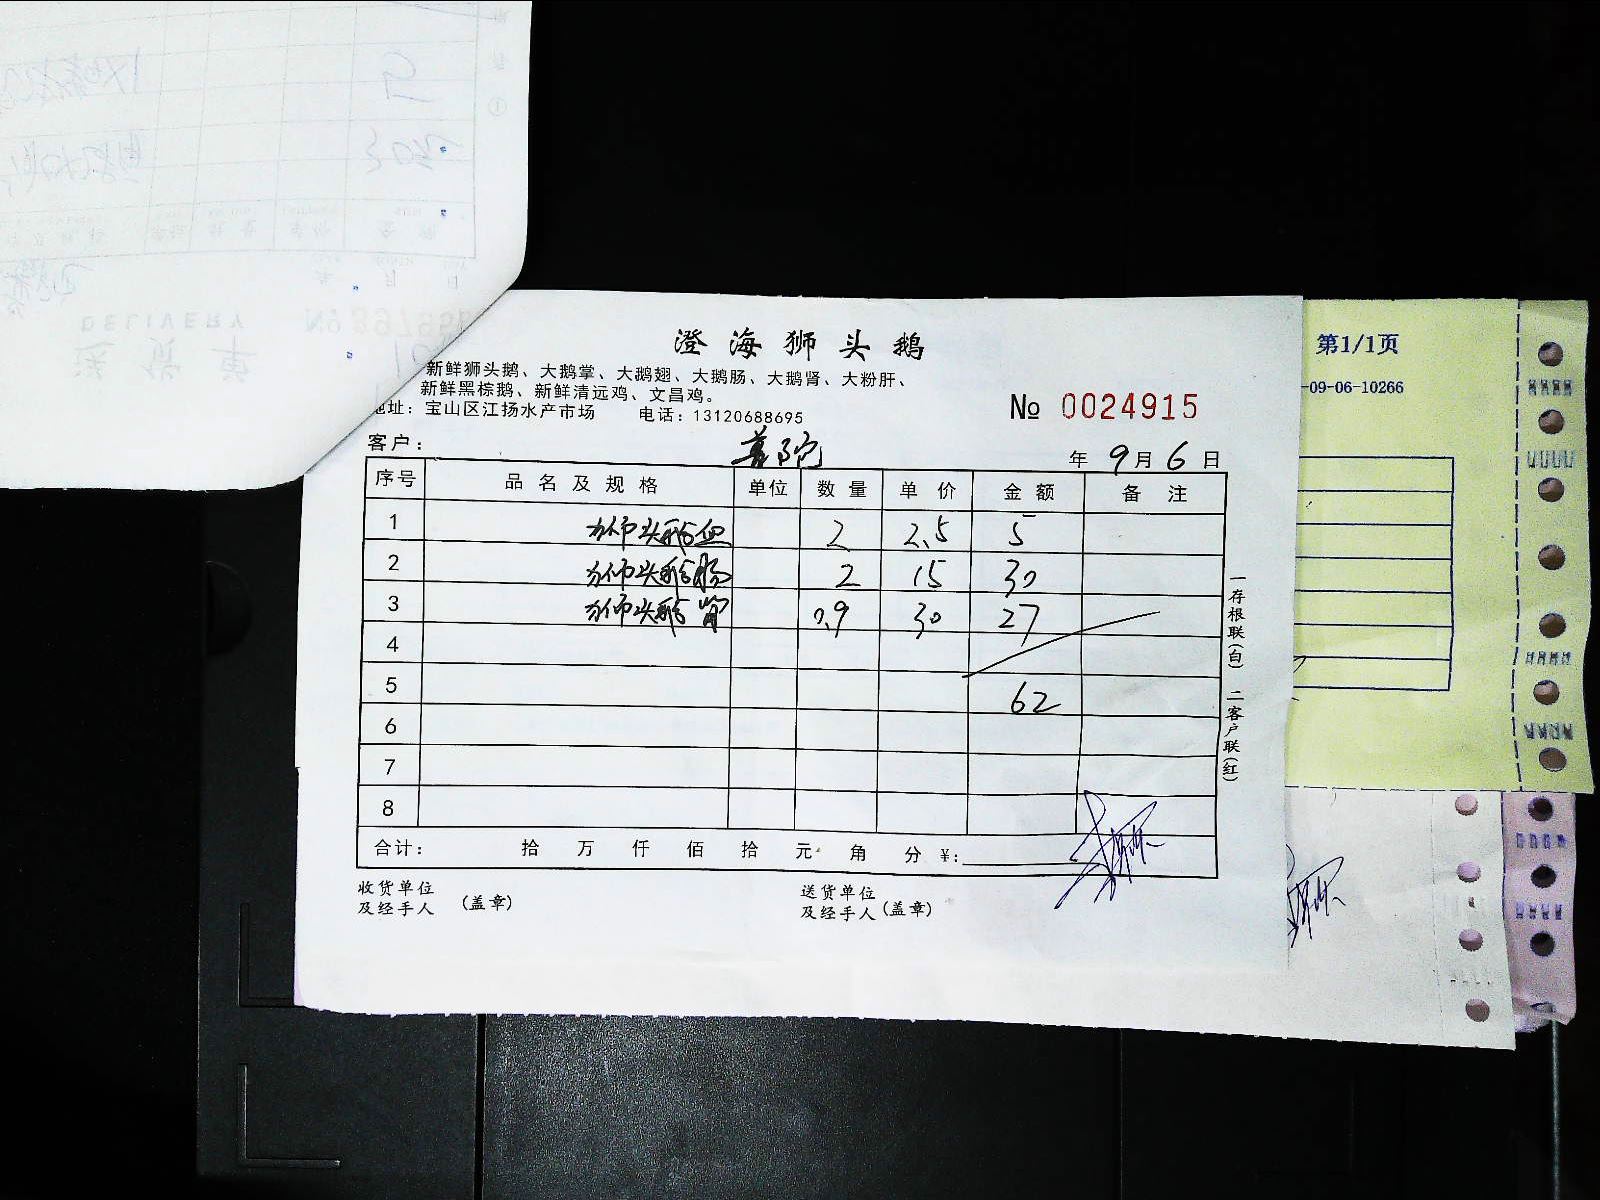 澄海狮头鹅
新鲜狮头鹅、大鹅掌、大鹅翅、大鹅肠、大鹅肾、大粉肝、
新鲜黑棕鹅、新鲜清远鸡、文昌鸡。
地址：宝山区江扬水产市场 电话：13120688695
№ 0024915
客户：
年 9月 6日
序号 品名及规格 单位 数量 单价 金额 备注
1 狮头鹅血 2 2.5 5
2 狮头鹅肠 2 15 30
3 狮头鹅肾 0.9 30 27
4
5 62
6
7
8
合计： 拾 万 仟 佰 拾 元 角 分 ¥:
收货单位
及经手人 (盖章)
送货单位
及经手人 (盖章)
一存根联(白) 二客户联(红)
第1/1页
-09-06-10266
DELIVERY
送货单